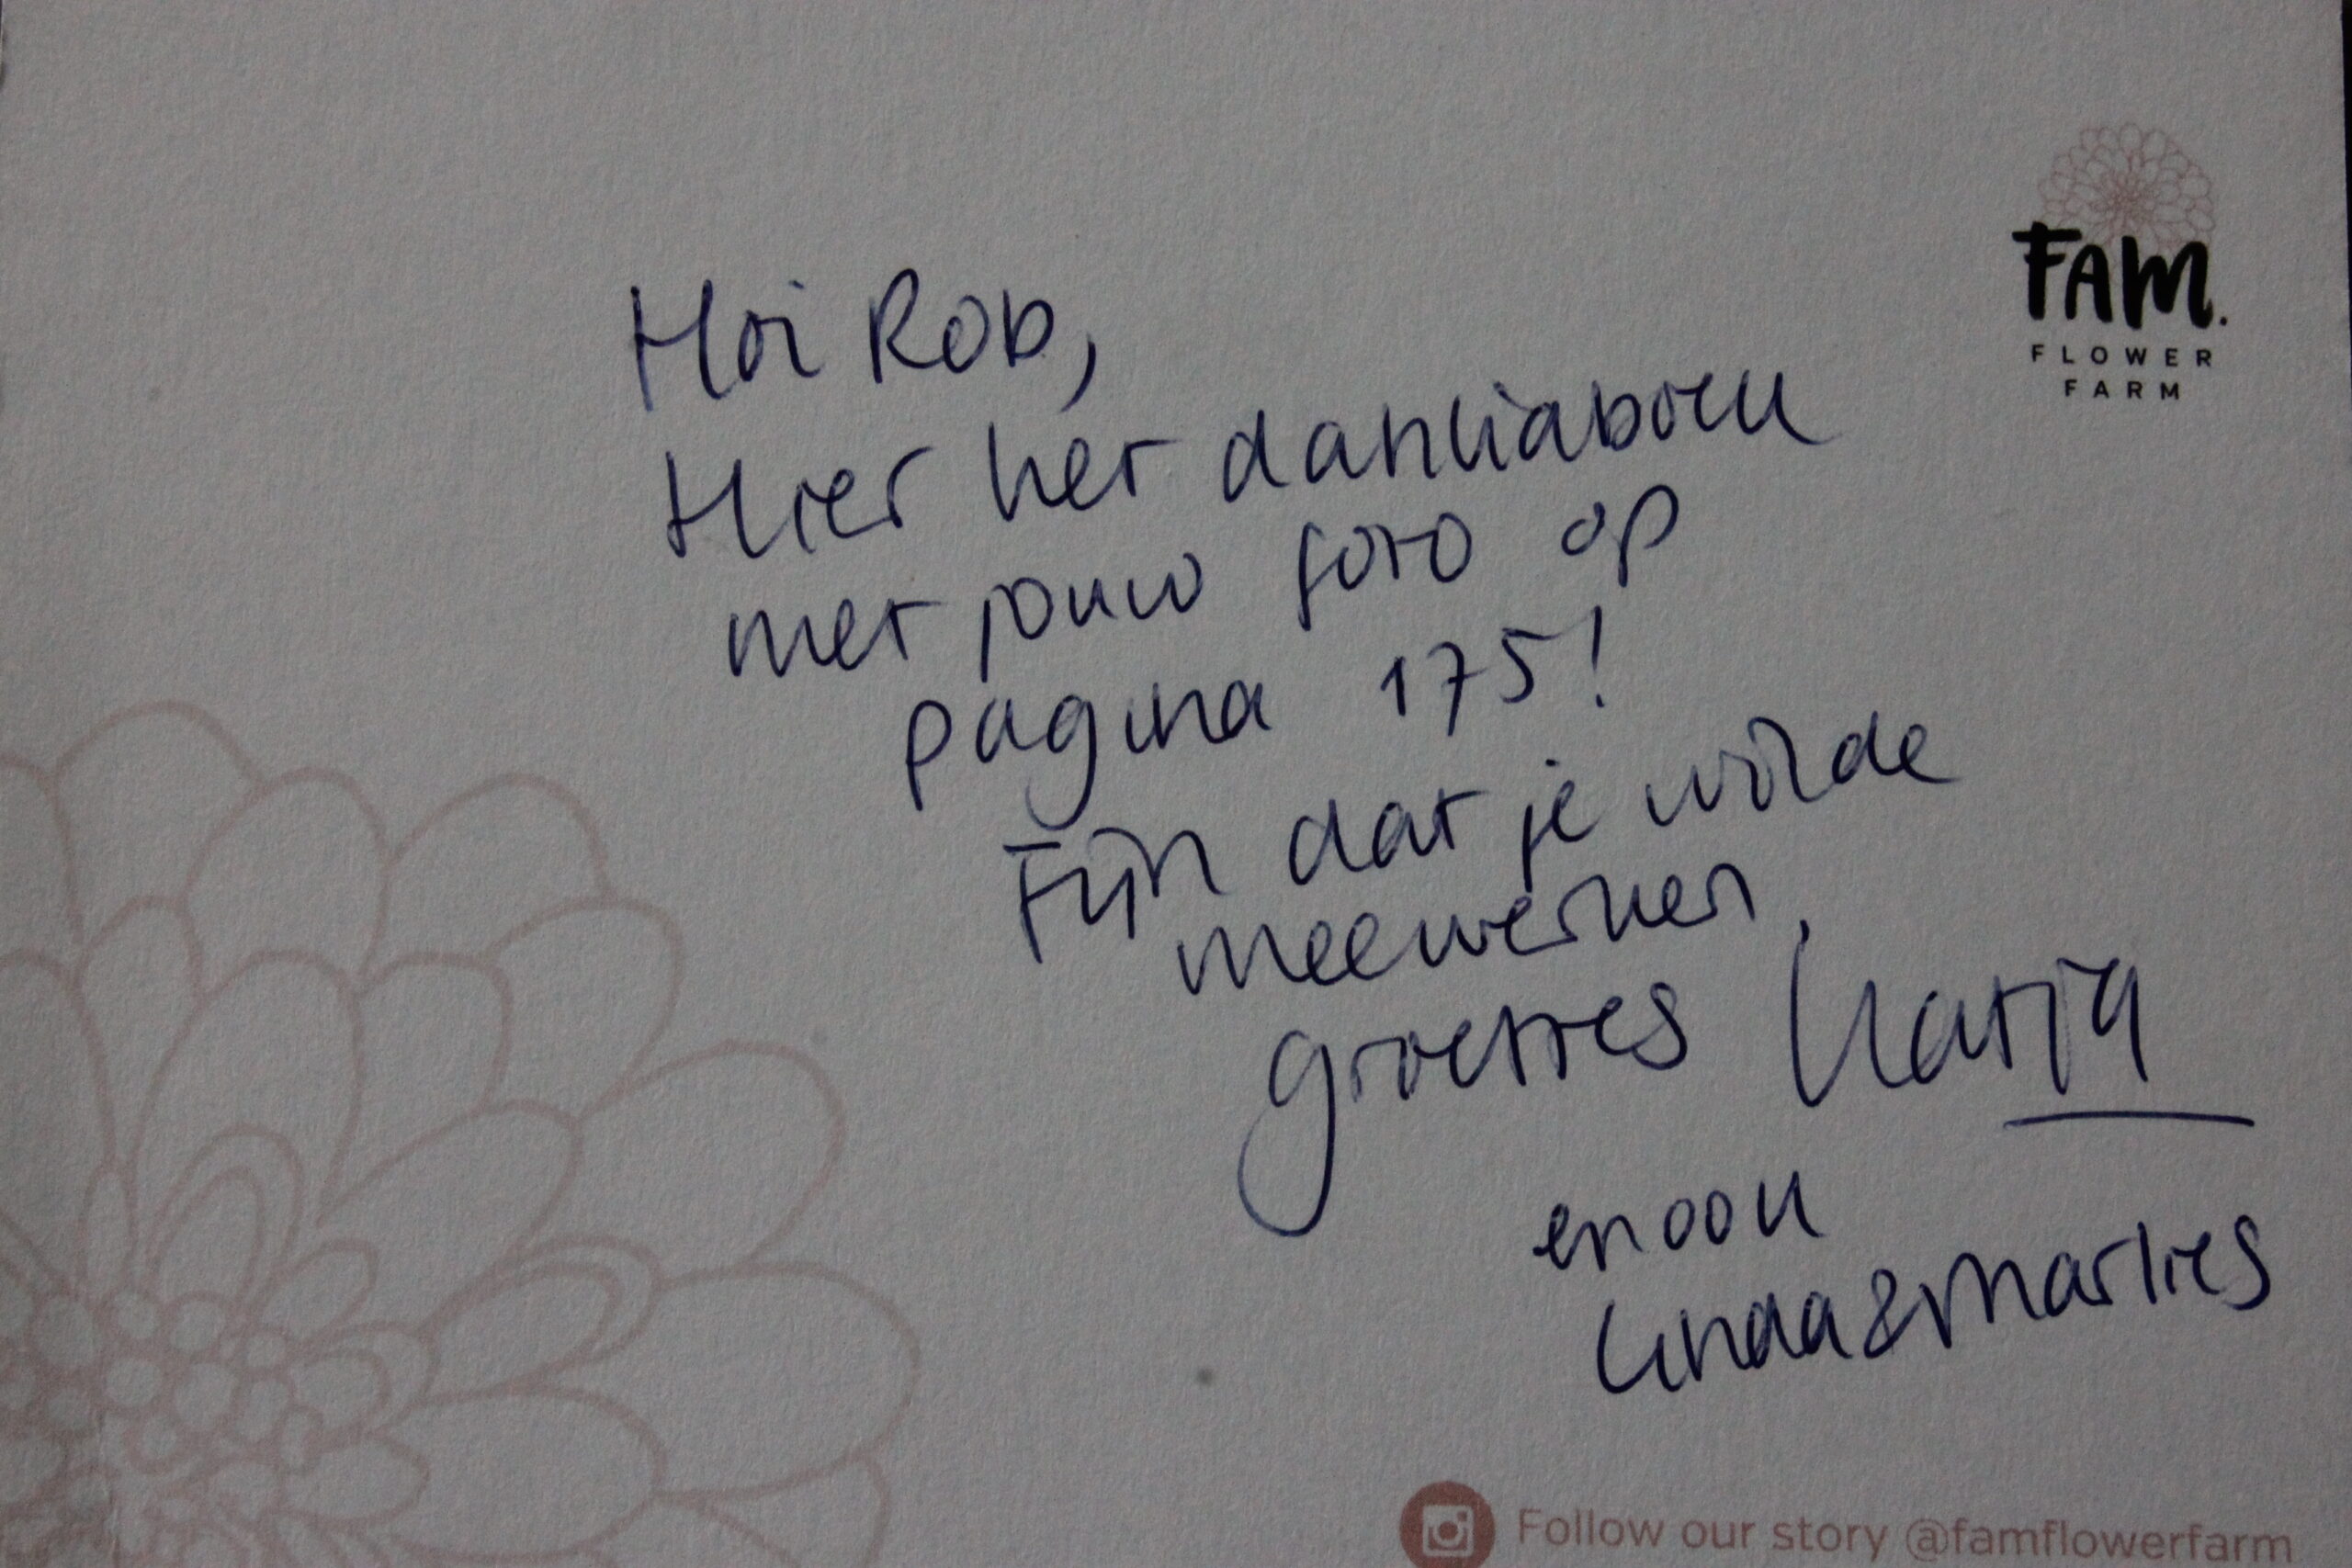 FAM.
FLOWER
FARM
Hoi Rob,
Hier het dahliaboek
met jouw foto op
pagina 175!
Fijn dat je wilde
meewerken,
groetjes Katja
en ook
Linda & Marlies
Follow our story @famflowerfarm